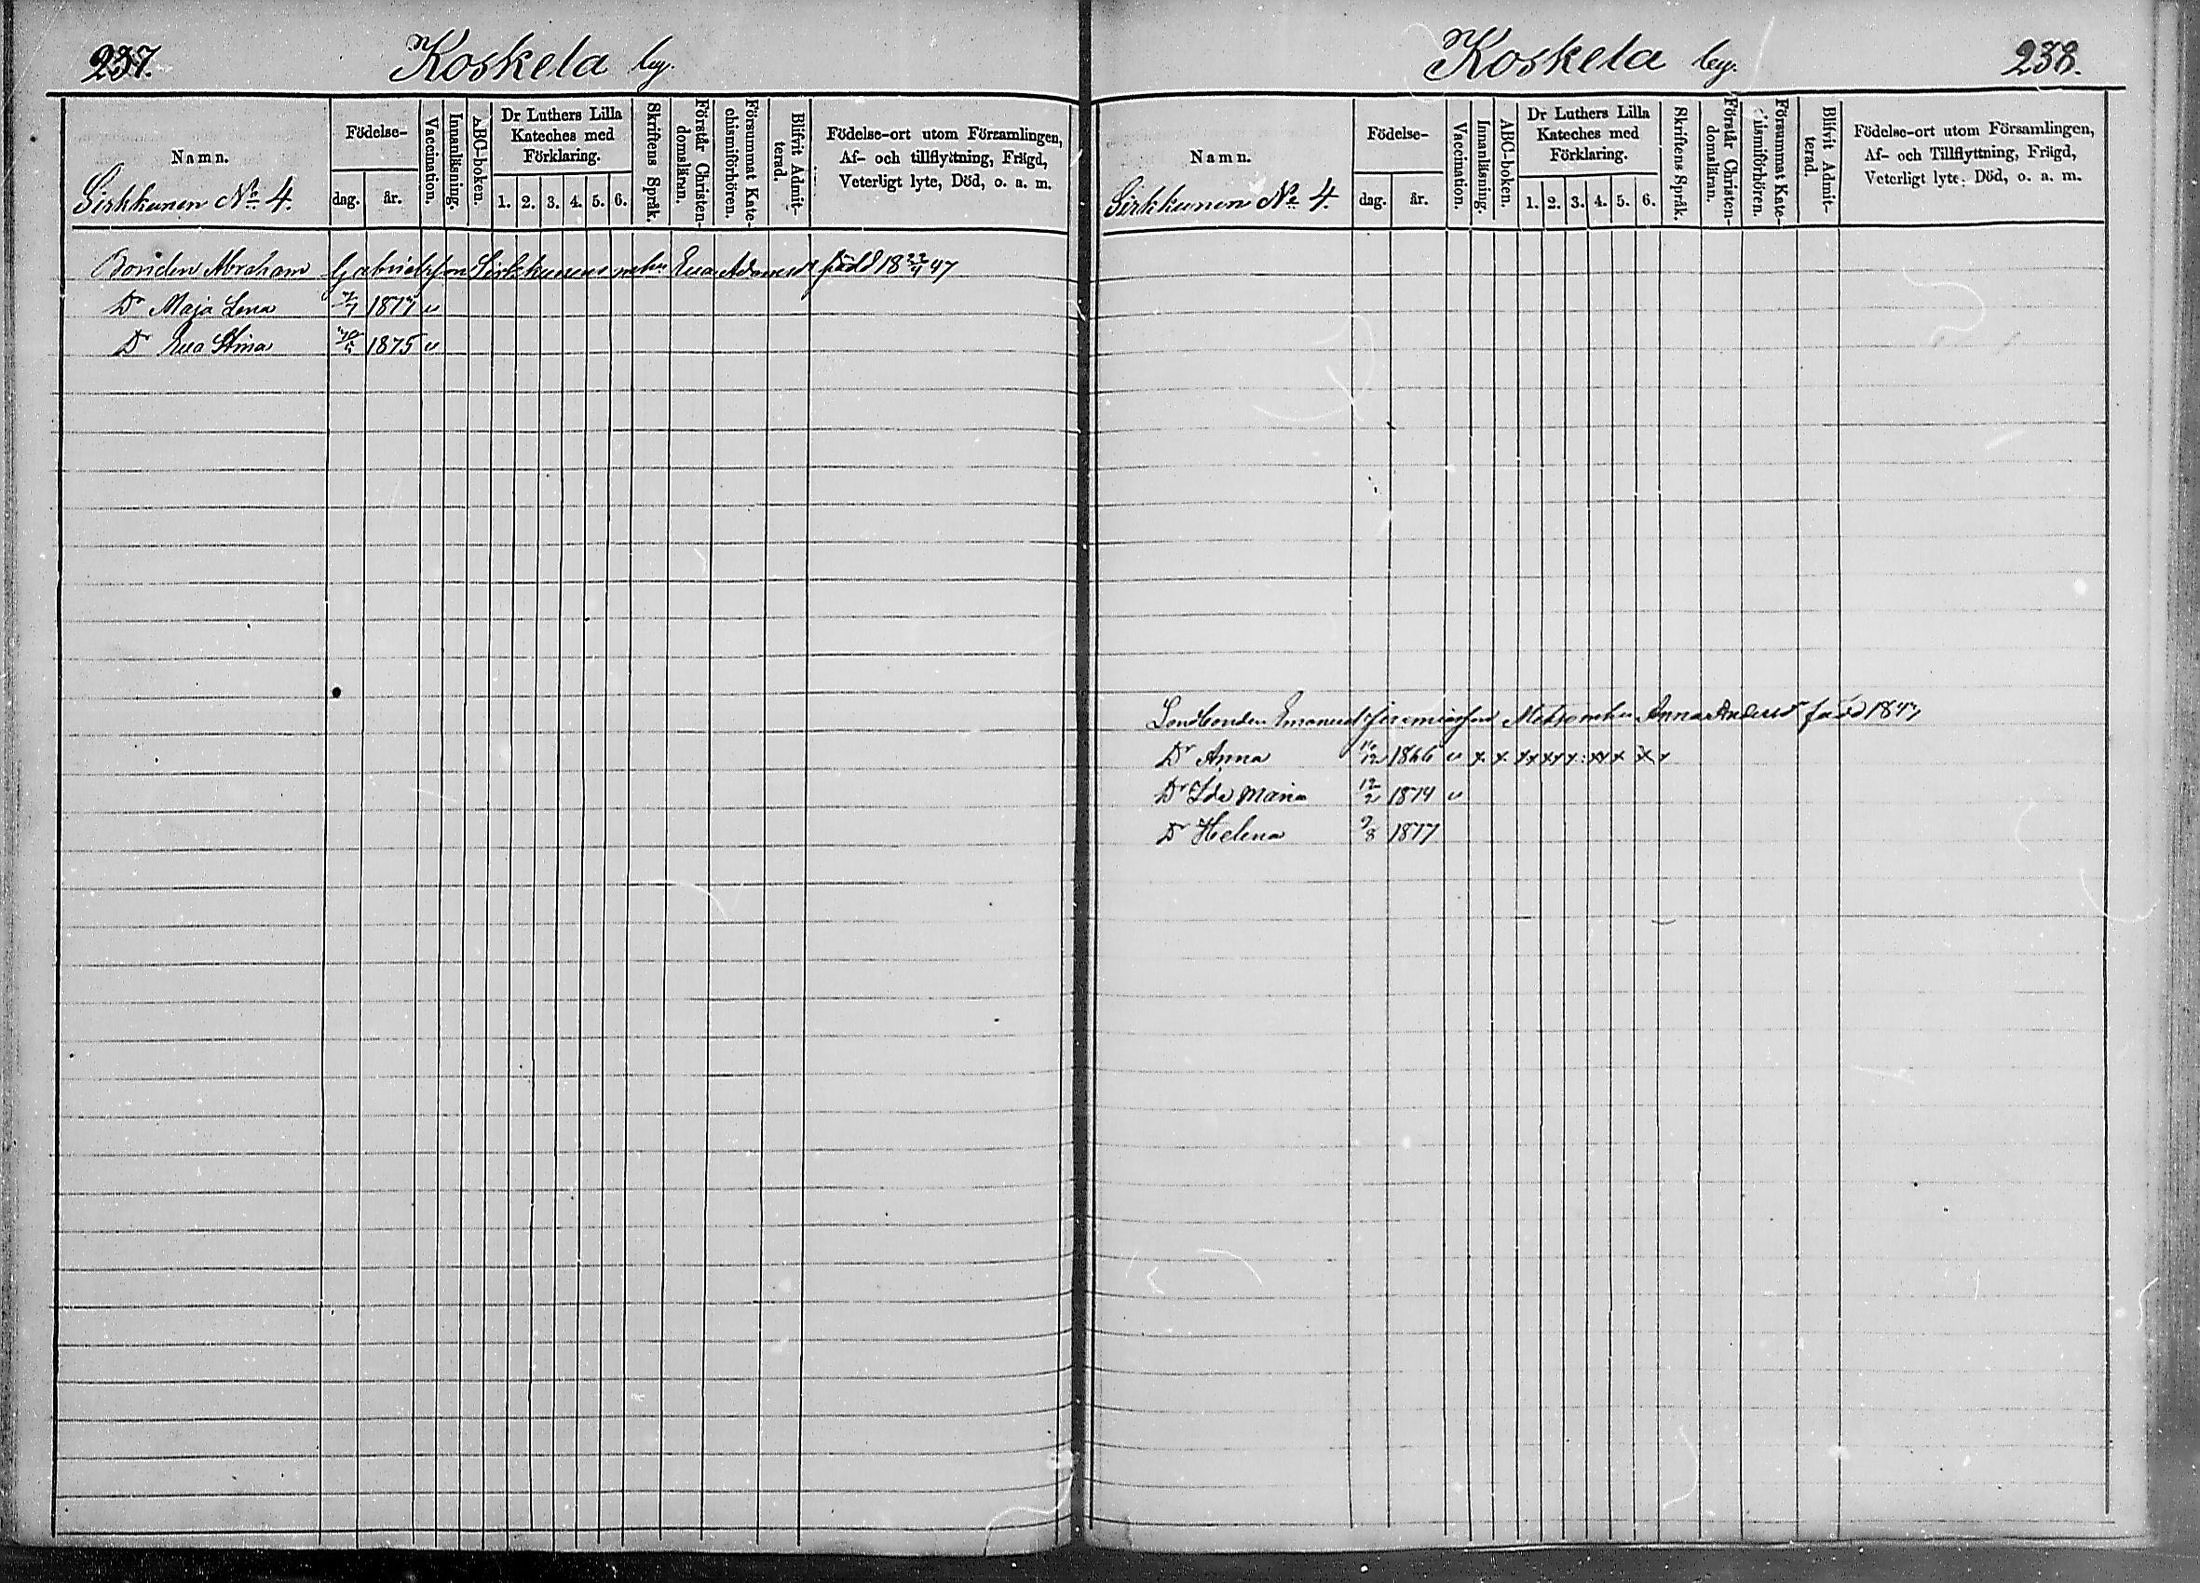 237.
Koskela by.
Namn.
Sirkkunen No 4.
Födelse-
dag.
år.
Vaccination.
Innanläsning.
ABC-boken.
Dr Luthers Lilla
Kateches med
Förklaring.
1. 2. 3. 4. 5. 6.
Skriftens Språk.
Förstår Christen-
domsläran.
Försummat Kate-
chismiförhören.
Blifvit Admit-
terad.
Födelse-ort utom Församlingen,
Af- och tillflyttning, Frägd,
Veterligt lyte, Död, o. a. m.
Bonden Abraham Gabrielsson Sirkkunens Eva Adamsdr född 18 22/4 47
Dr Maja Lena 1877 v
Dr Eva Stina 1875 v
Koskela by.
238.
Namn.
Sirkkunen No 4.
Födelse-
dag.
år.
Vaccination.
Innanläsning.
ABC-boken.
Dr Luthers Lilla
Kateches med
Förklaring.
1. 2. 3. 4. 5. 6.
Skriftens Språk.
Förstår Christen-
domsläran.
Försummat Kate-
chismiförhören.
Blifvit Admit-
terad.
Födelse-ort utom Församlingen,
Af- och Tillflyttning, Frägd,
Veterligt lyte, Död, o. a. m.
Landbonden Emanuel Jeremiasson Anna Andersdr född 1847
Dr Anna 1866 v x x x x x x x x x x x x
Dr Ida Maria 12/2 1874 v
Dr Helena 9/8 1877